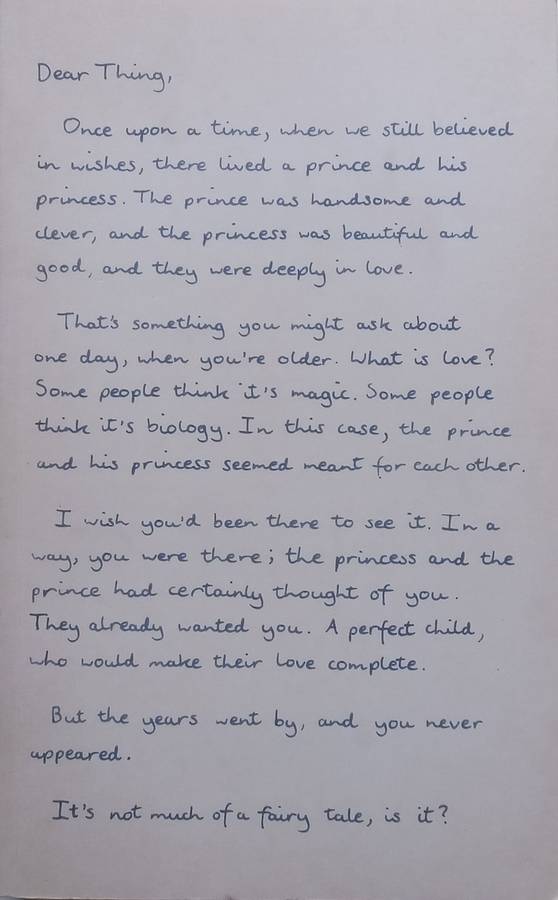 Dear Thing,
Once upon a time, when we still believed
in wishes, there lived a prince and his
princess. The prince was handsome and
clever, and the princess was beautiful and
good, and they were deeply in love.
That's something you might ask about
one day, when you're older. What is love?
Some people think it's magic. Some people
think it's biology. In this case, the prince
and his princess seemed meant for each other.
I wish you'd been there to see it. In a
way, you were there; the princess and the
prince had certainly thought of you.
They already wanted you. A perfect child,
who would make their love complete.
But the years went by, and you never
appeared.
It's not much of a fairy tale, is it?